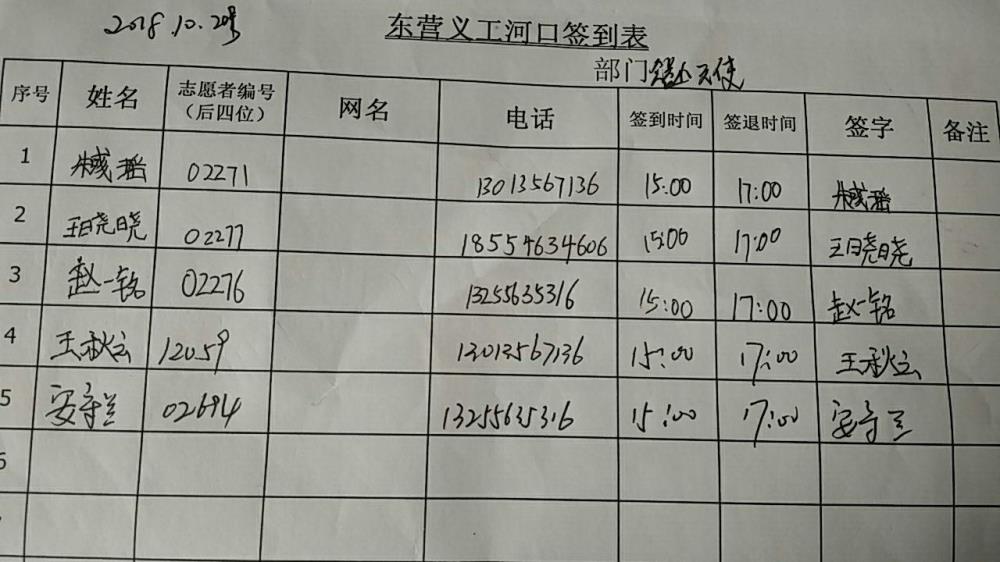 2018.10.20号
东营义工河口签到表
部门 天使
序号 姓名 志愿者编号（后四位） 网名 电话 签到时间 签退时间 签字 备注
1 臧瑶 02271 13013567136 15:00 17:00 臧瑶
2 王晓晓 02277 18554634606 15:00 17:00 王晓晓
3 赵一铭 02276 13255635316 15:00 17:00 赵一铭
4 王秋云 12059 13013567136 15:00 17:00 王秋云
5 安守兰 02694 13255635316 15:00 17:00 安守兰
6